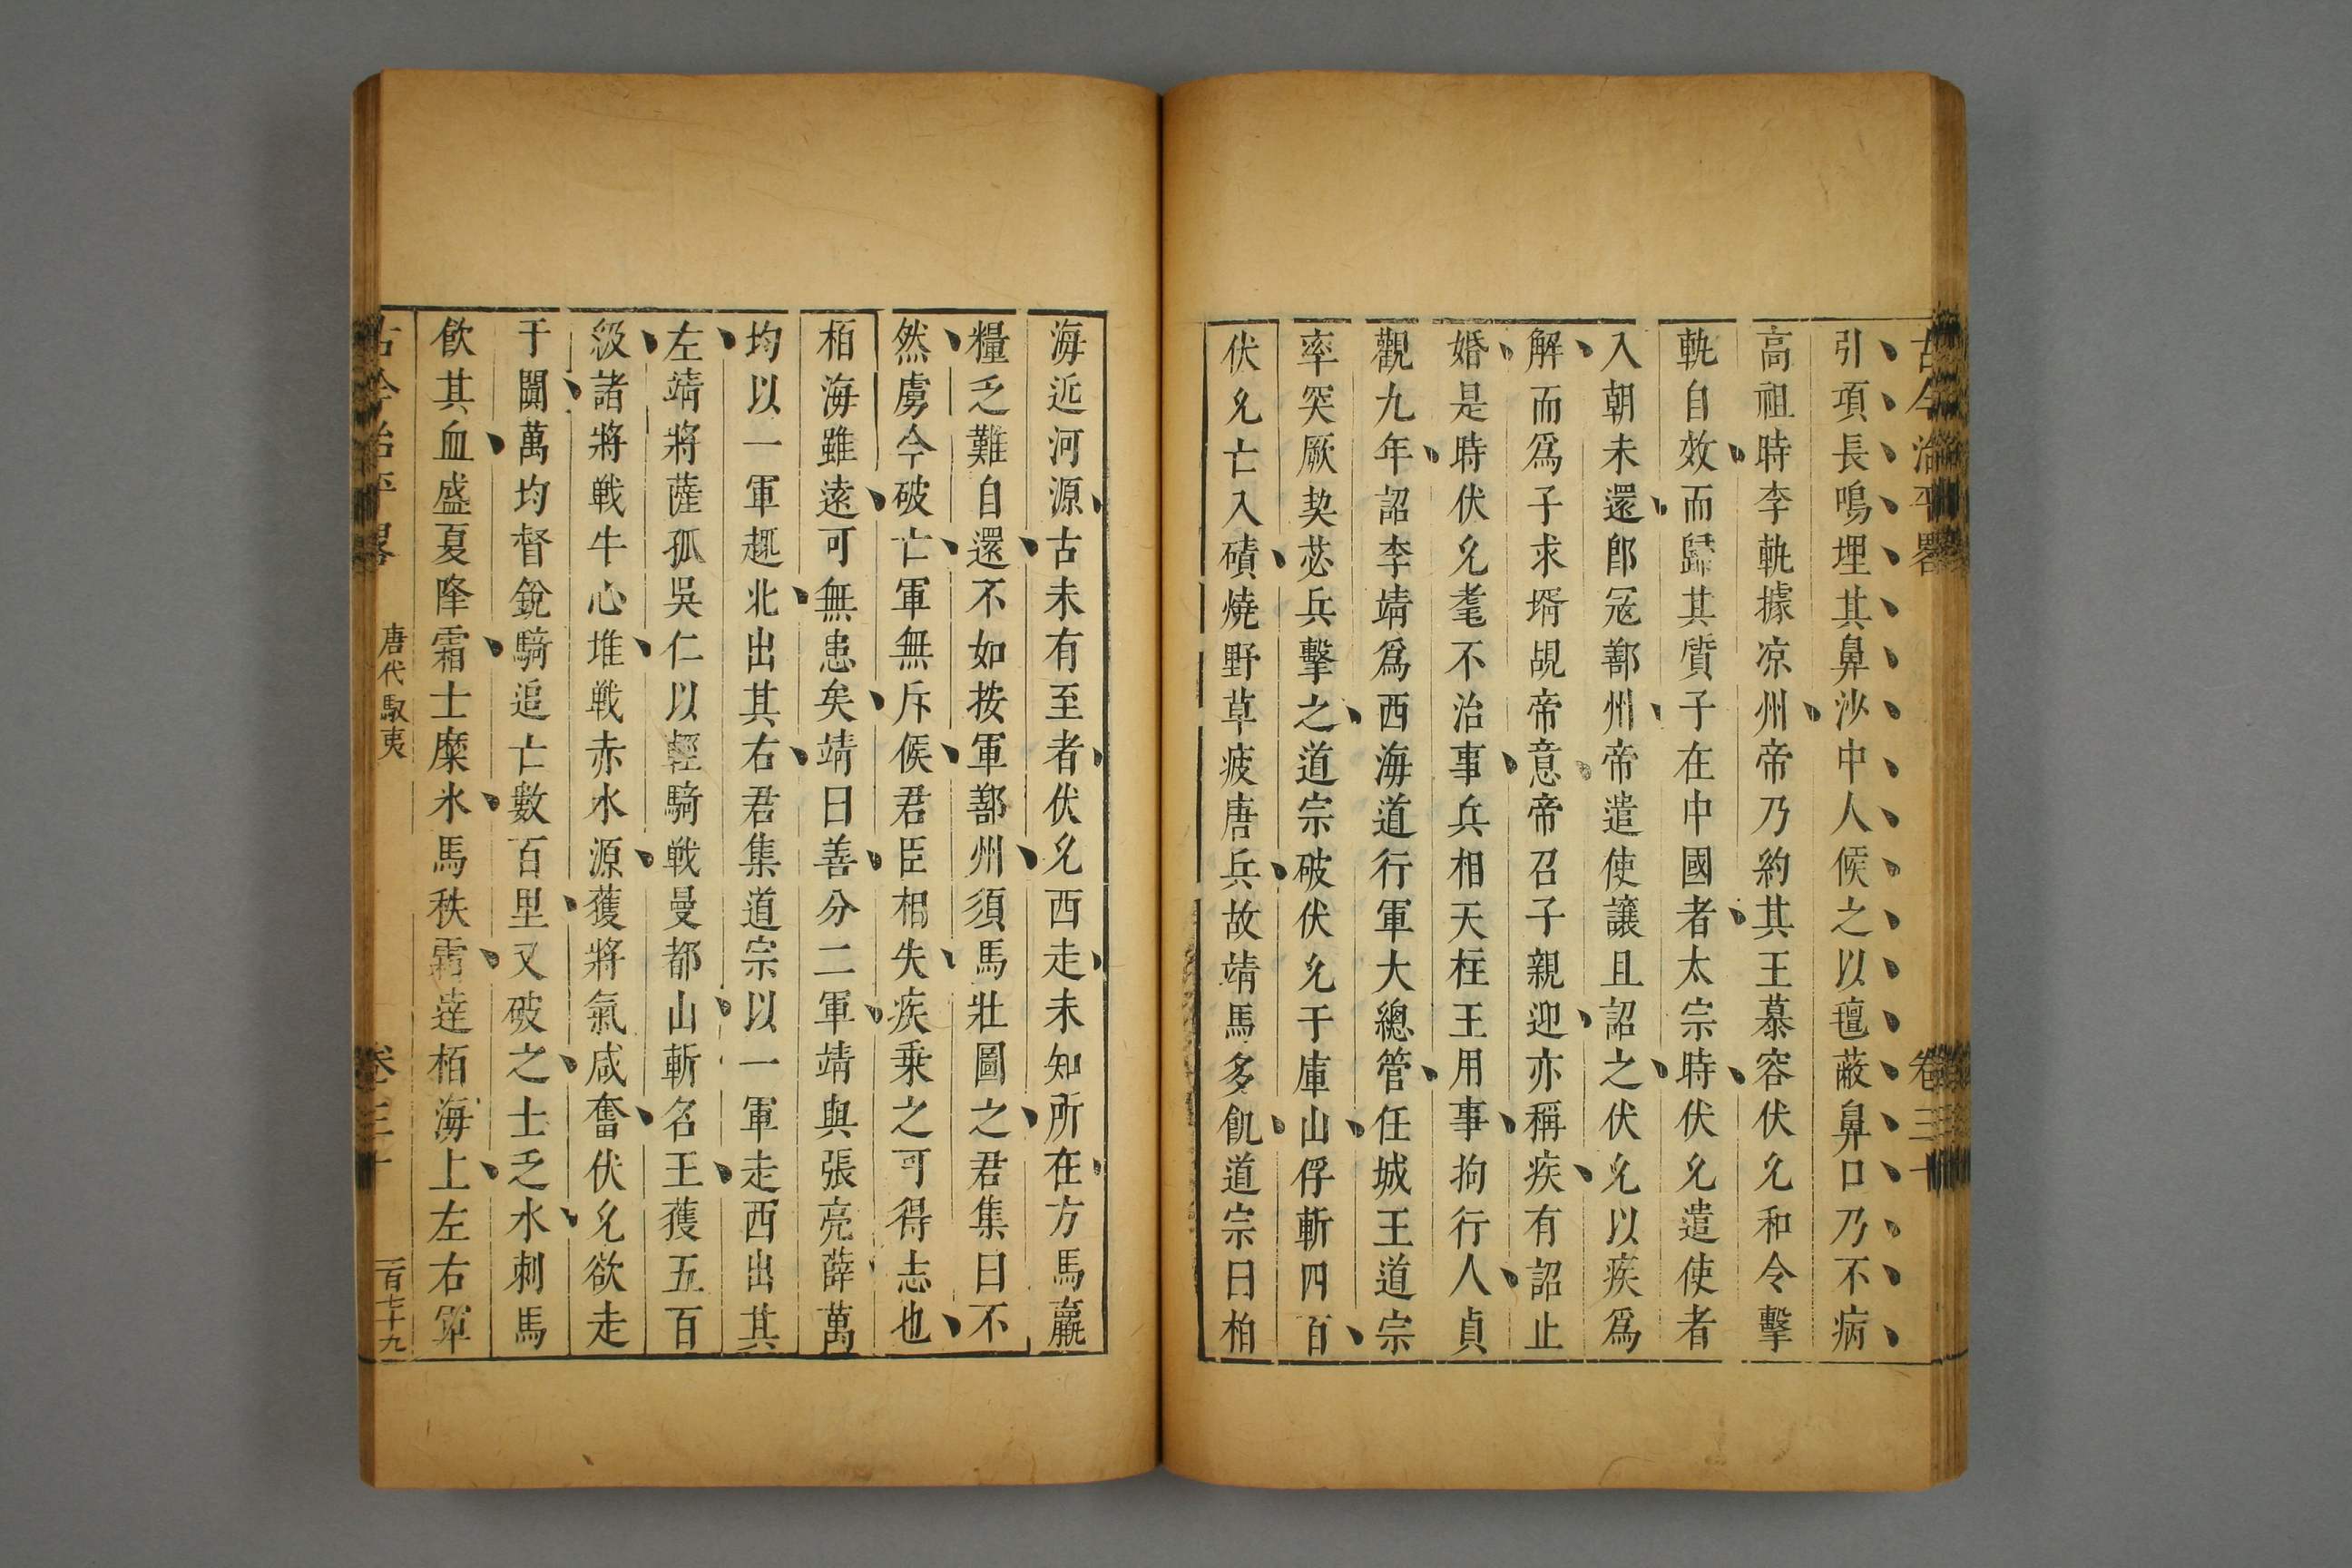 古今治平畧 卷三十
引項長鳴埋其鼻沙中人候之以氊蔽鼻口乃不病
高祖時李軌據凉州帝乃約其王慕容伏允和令擊
軌自效而歸其質子在中國者太宗時伏允遣使者
入朝未還卽冦鄯州帝遣使讓且詔之伏允以疾爲
解而爲子求壻覘帝意帝召子親迎亦稱疾有詔止
婚是時伏允耄不治事兵相天柱王用事拘行人貞
觀九年詔李靖爲西海道行軍大總管任城王道宗
率突厥契苾兵擊之道宗破伏允于庫山俘斬四百
伏允亡入磧燒野草疲唐兵故靖馬多飢道宗曰柏
海近河源古未有至者伏允西走未知所在方馬羸
糧乏難自還不如按軍鄯州須馬壯圖之君集曰不
然虜今破亡軍無斥候君臣相失疾乗之可得志也
栢海雖遠可無患矣靖曰善分二軍靖與張亮薛萬
均以一軍趣北出其右君集道宗以一軍走西出其
左靖將薩孤吳仁以輕騎戰曼都山斬名王獲五百
級諸將戰牛心堆戰赤水源獲將氣咸奮伏允欲走
于闐萬均督銳騎追亡數百里又破之士乏水刺馬
飲其血盛夏降霜士糜氷馬秣雪達栢海上左右軍
古今治平畧 唐代馭夷 卷三十 一百七十九